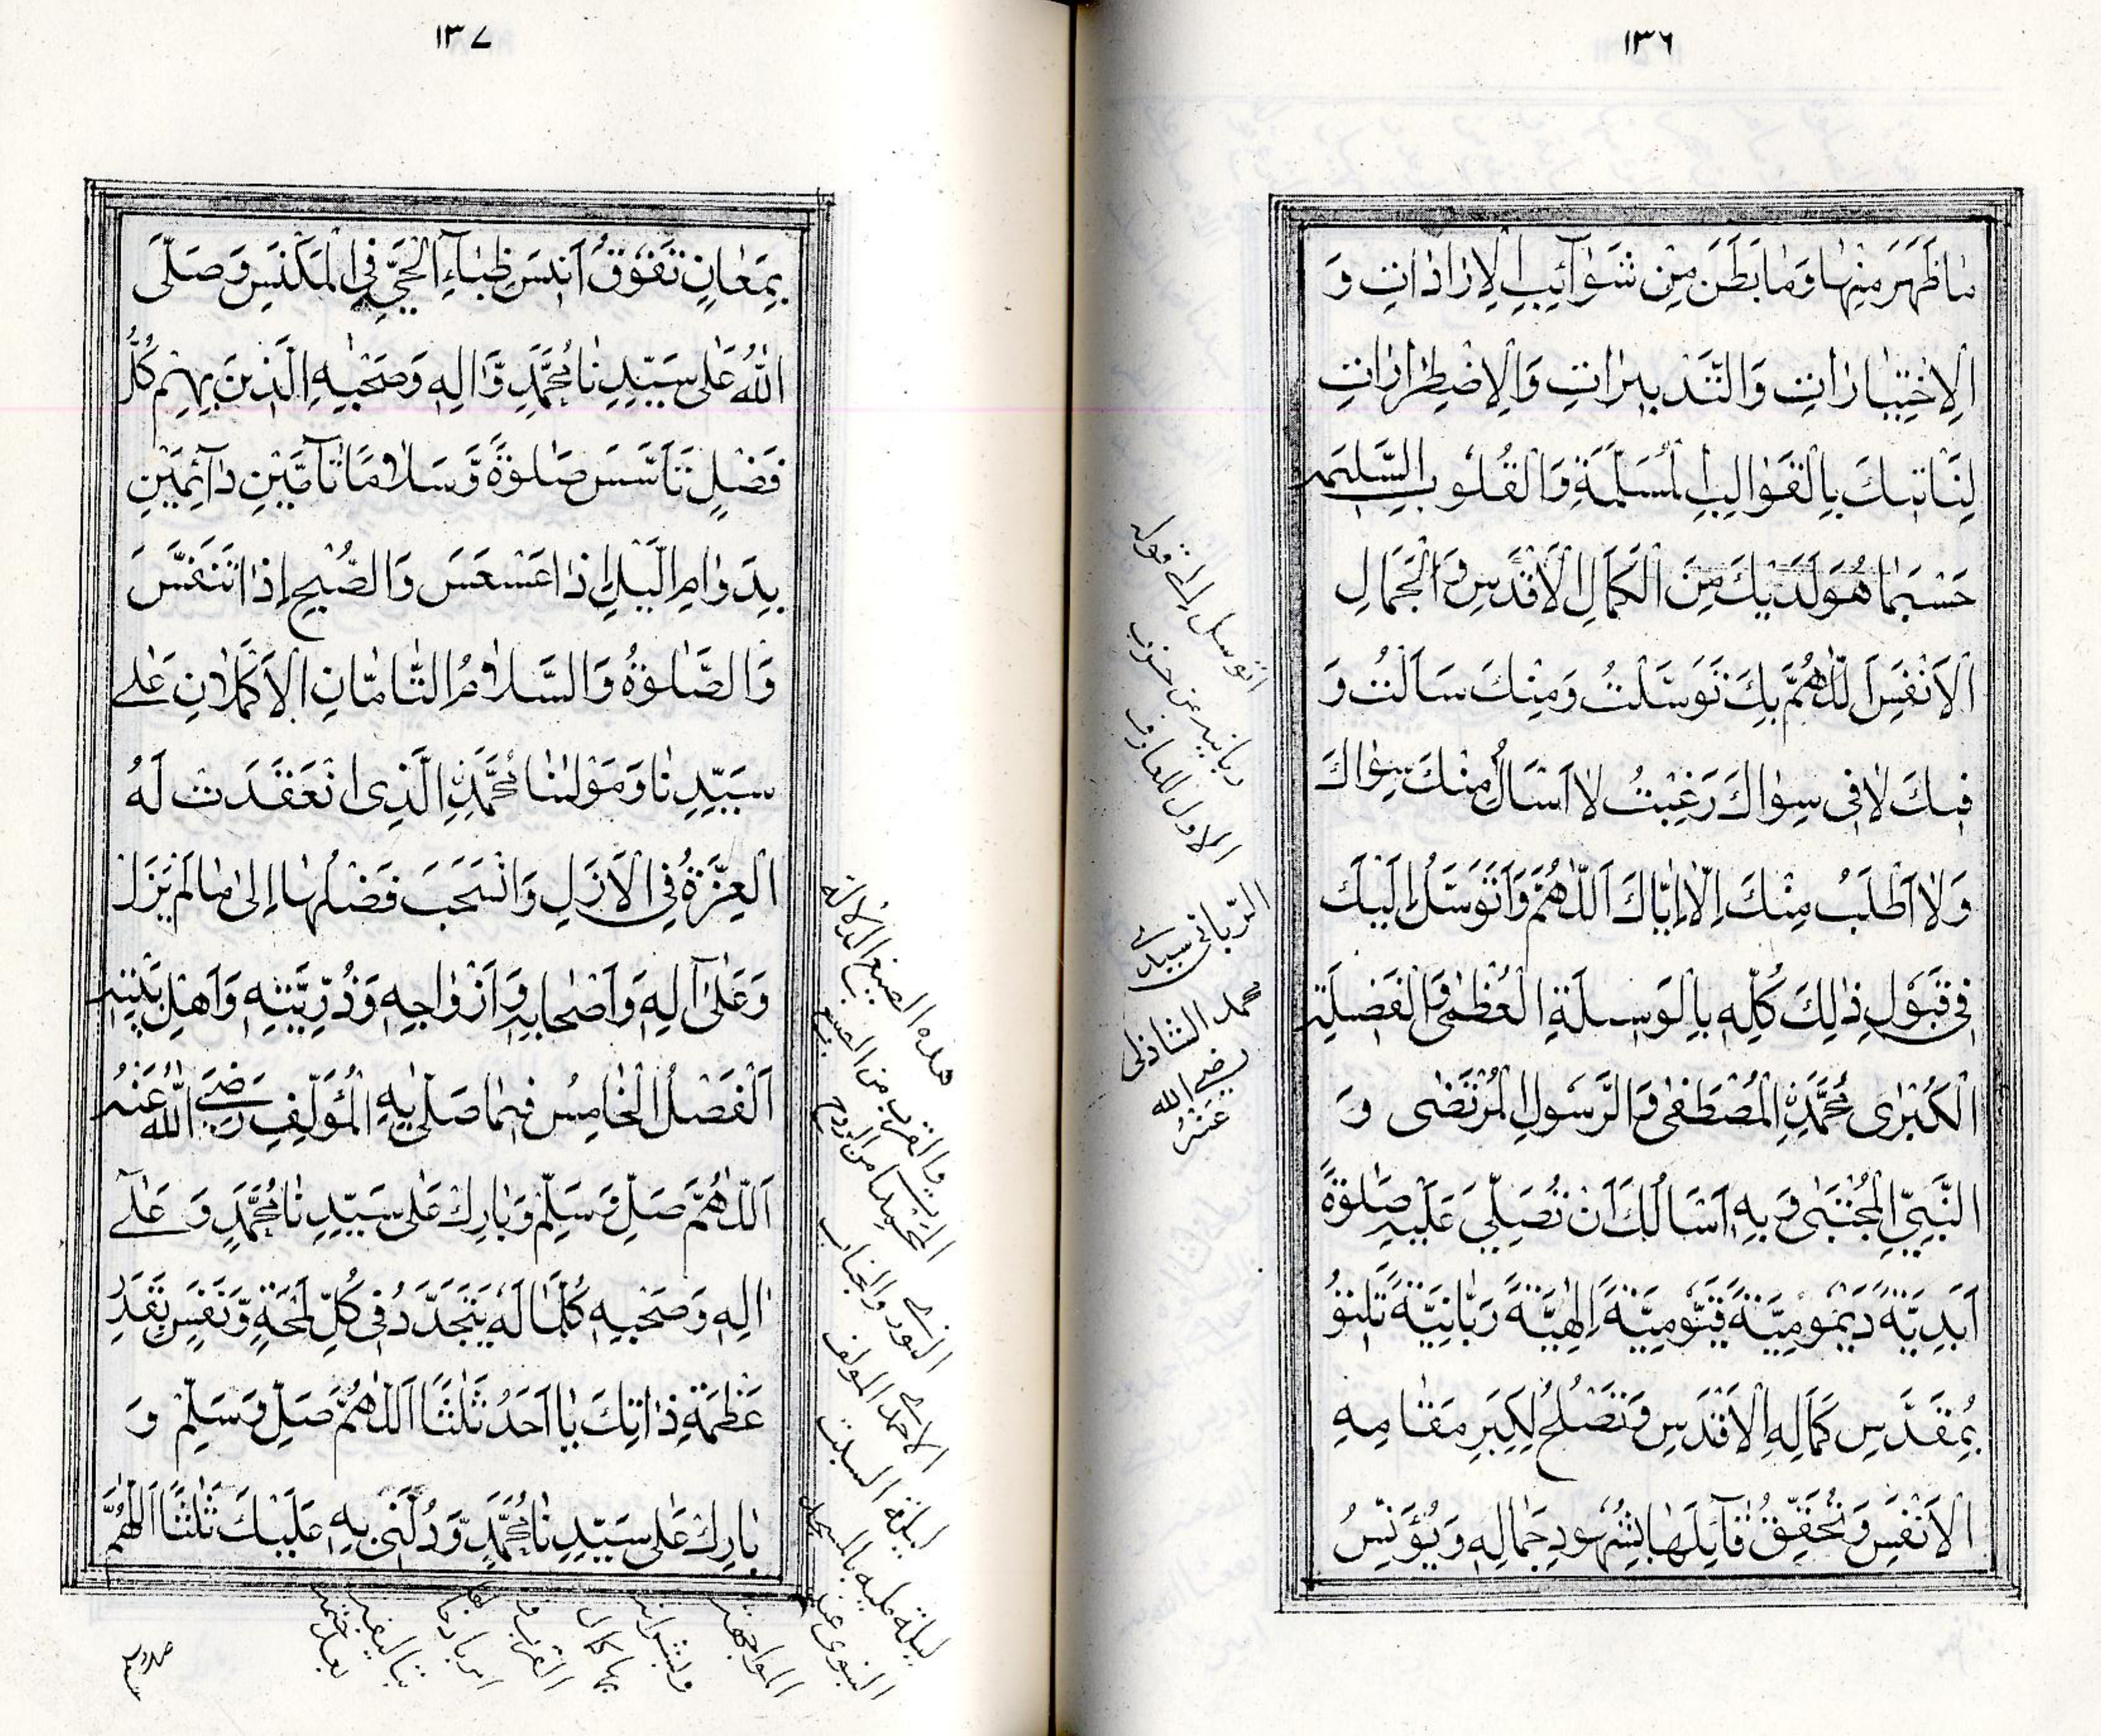 ١٣٦
مَاظَهَرَ مِنْهَا وَمَا بَطَنَ مِنْ شَوَآئِبِ الْاِرَادَاتِ وَ
الْاِخْتِيَارَاتِ وَالتَّدْبِيرَاتِ وَالْاِضْطِرَارَاتِ
لِنَاتِيَكَ بِالْقَوَالِبِ الْمُسَلِّمَةِ وَالْقُلُوبِ السَّلِيمَه
حَسْبَمَا هُوَ لَدَيْكَ مِنَ الْكَمَالِ الْاَقْدَسِ وَالْجَمَالِ
الْاَنْفَسِ اَللّٰهُمَّ بِكَ تَوَسَّلْتُ وَمِنْكَ سَاَلْتُ وَ
فِيكَ لَا فِي سِوَاكَ رَغِبْتُ لَا اَسْاَلُ مِنْكَ سِوَاكَ
وَلَا اَطْلَبُ مِنْكَ اِلَّا اِيَّاكَ اَللّٰهُمَّ وَاَتَوَسَّلُ اِلَيْكَ
فِي قَبُولِ ذٰلِكَ كُلِّهِ بِالْوَسِيلَةِ الْعُظْمٰى وَالْفَضِيلَةِ
الْكُبْرٰى مُحَمَّدِ الْمُصْطَفٰى وَالرَّسُولِ الْمُرْتَضٰى وَ
النَّبِيِّ الْمُجْتَبٰى وَبِهِ اَسْاَلُكَ اَنْ تُصَلِّيَ عَلَيْهِ صَلٰوةً
اَبَدِيَّةً دَيْمُومِيَّةً قَيُّومِيَّةً اِلٰهِيَّةً رَبَّانِيَّةً تَلِيقُ
بِمُقَدَّسِ كَمَالِهِ الْاَقْدَسِ وَتَصْلُحُ لِكَبِرِ مَقَامِهِ
الْاَنْفَسِ وَتُحَقِّقُ قَآئِلَهَا بِشُهُودِ جَمَالِهِ وَيُؤَنِّسُ
اتوسل الى قوله
ربانيه عن حزب
الاول للعارف
الربانى سيدى
محمد الشاذلى
رضى الله
عَنْهُ
١٣٧
بِمَعَانٍ تَفُوقُ اَنِسَ ظِبَآءِ الْحَيِّ فِي الْمَكْنَسِ وَصَلَّى
اللّٰهُ عَلٰى سَيِّدِنَا مُحَمَّدٍ وَّاٰلِهِ وَصَحْبِهِ الَّذِينَ بِهِمْ كُلُّ
فَضْلٍ تَاَسَّسَ صَلٰوةً وَّسَلَامًا تَآمَّيْنِ دَآئِمَيْنِ
بِدَوَامِ الَّيْلِ اِذَا عَسْعَسَ وَالصُّبْحِ اِذَا تَنَفَّسَ
وَالصَّلٰوةُ وَالسَّلَامُ التَّامَّانِ الْاَكْمَلَانِ عَلٰى
سَيِّدِنَا وَمَوْلٰنَا مُحَمَّدِ الَّذِى انْعَقَدَتْ لَهُ
الْعِزَّةُ فِي الْاَزَلِ وَانْسَحَبَ فَضْلُهَا اِلٰى مَا لَمْ يَزَلْ
وَعَلٰى آلِهِ وَاَصْحَابِهِ وَاَزْوَاجِهِ وَذُرِّيَّتِهِ وَاَهْلِ بَيْتِهِ
اَلْفَصْلُ الْخَامِسُ فِيمَا صَلّٰى بِهِ الْمُؤَلِّفِ رَضِيَ اللّٰهُ عَنْهُ
اَللّٰهُمَّ صَلِّ وَسَلِّمْ وَبَارِكْ عَلٰى سَيِّدِنَا مُحَمَّدٍ وَ عَلٰٓى
اٰلِهِ وَصَحْبِهِ كُلَّمَا لَهُ يَتَجَدَّدُ فِي كُلِّ لَمْحَةٍ وَّنَفَسٍ بِقَدَرِ
عَظَمَةِ ذَاتِكَ يَا اَحَدُ ثَلٰثًا اَللّٰهُمَّ صَلِّ وَسَلِّمْ وَ
بَارِكْ عَلٰى سَيِّدِنَا مُحَمَّدٍ وَّدُلَّنِى بِهِ عَلَيْكَ ثَلٰثًا اَللّٰهُمَّ
هذه الصيغ الدلالة
والقرب من الصيغ
الاحمد المولف
ليلة السبت